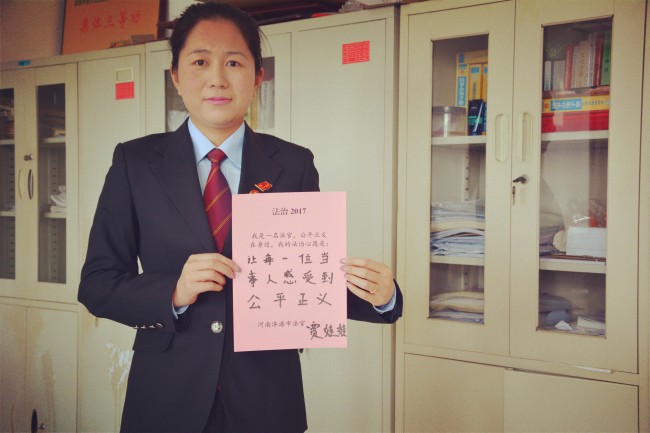 集体三等功
法治 2017
我是一名法官，公平正义
在身边，我的法治心愿是：
让每一位当
事人感受到
公平正义
河南济源市法官 贾